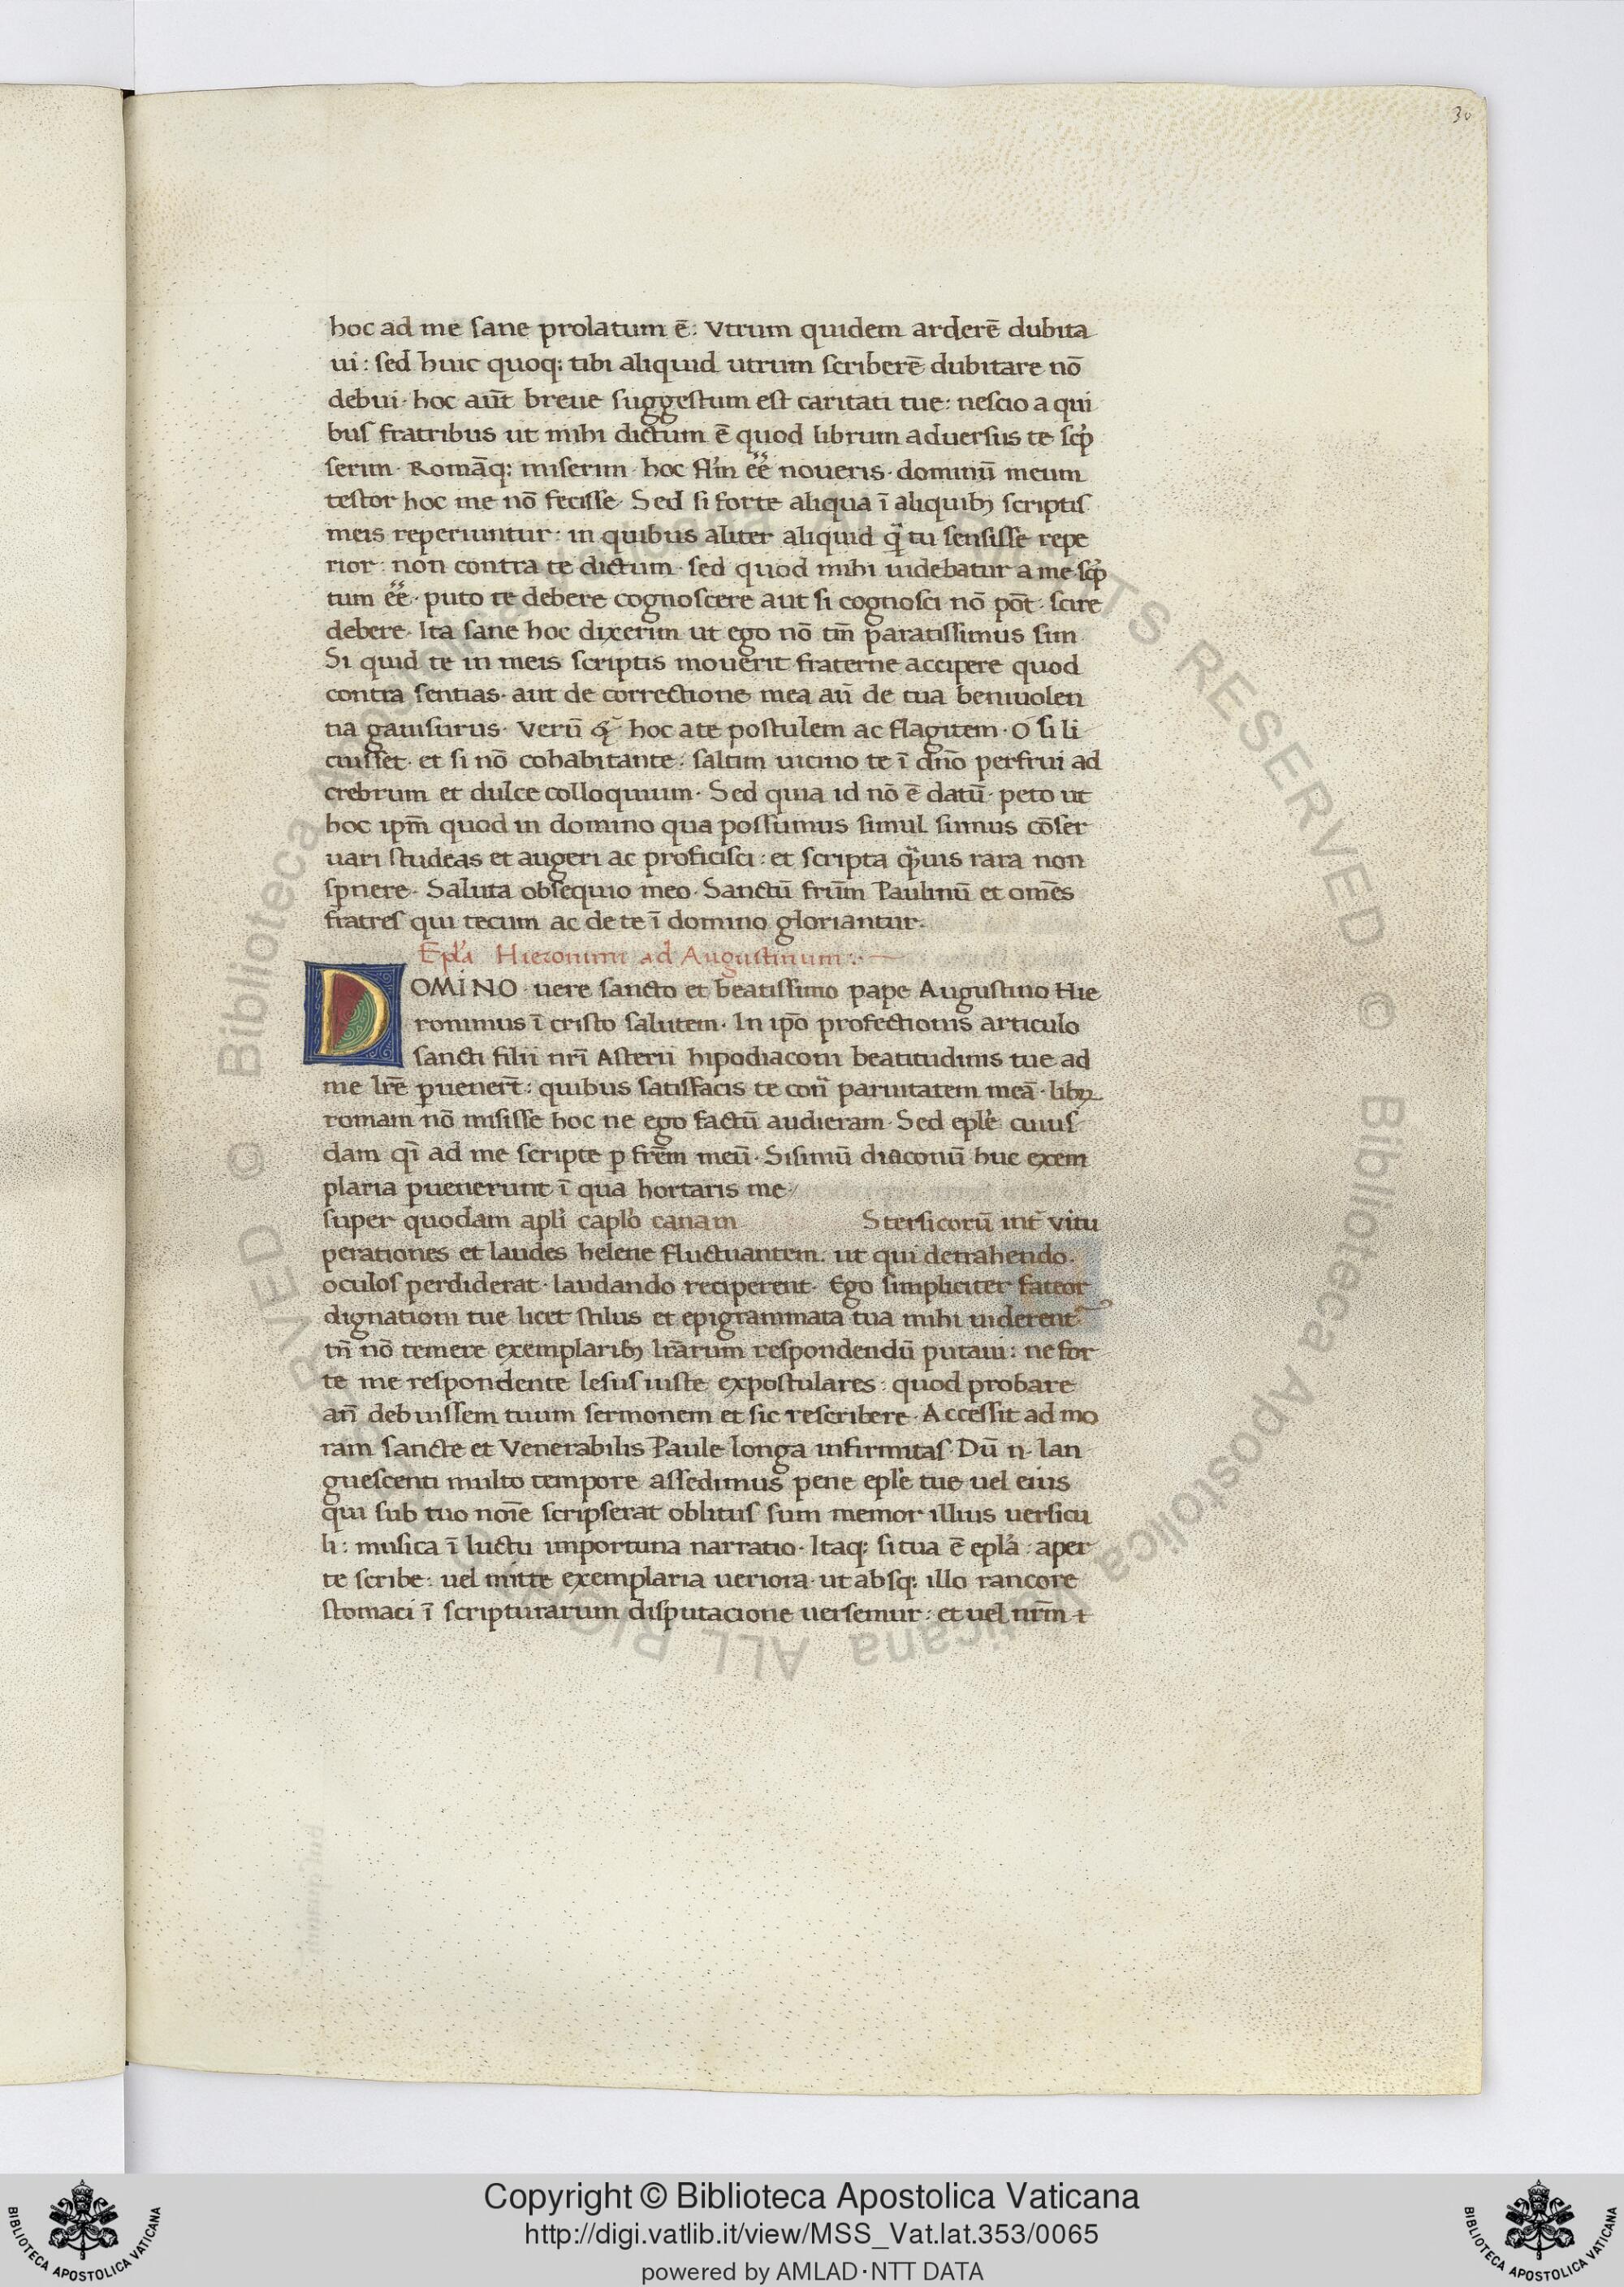 30
hoc ad me sane prolatum ē: Vtrum quidem arderē dubita
ui: sed huic quoq: tibi aliquid utrum scriberē dubitare nō
debui· hoc aūt breue suggestum est caritati tue: nescio a qui
bus fratribus ut mihi dictum ē quod librum aduersus te scp̄
serim· Romāq: miserim· hoc fl'm ēē noueris· dominū meum
testor hoc me nō fecisse· Sed si forte aliqua ī aliquibꝫ scriptis
meis reperiuntur: in quibus aliter aliquid q̄ tu sensisse repe
rior: non contra te dictum· sed quod mihi uidebatur a me scp̄
tum ēē· puto te debere cognoscere aut si cognosci nō pōt· scire
debere· Ita sane hoc dixerim ut ego nō tm̄ paratissimus sim·
Si quid te in meis scriptis mouerit fraterne accipere quod
contra sentias· aut de correctione mea aū de tua beniuolen
tia gauisurus· Verū hoc ate postulem ac flagitem· O si li
cuisset· et si nō cohabitante: saltim uicino te ī dn̄o perfrui ad
crebrum et dulce colloquium· Sed quia id nō ē datū· peto ut
hoc ipm̄ quod in domino qua possumus simul simus cōser
uari studeas et augeri ac proficisci: et scripta q̄uis rara non
spnere· Saluta obsequio meo· Sanctū frūm Paulinū et omēs
fratres qui tecum ac de te ī domino gloriantur·
Epl'a Hieronimi ad Augustinum:·
DOMINO· uere sancto et beatissimo pape Augustino Hie
ronimus ī cristo salutem· In ip̄o profectionis articulo
sancti filii nr̄i Asterii hipodiaconi beatitudinis tue ad
me lr̄e ꝑuenert̄: quibus satisfacis te con̄ paruitatem meā· libꝝ
romam nō misisse hoc ne ego factū audieram· Sed epl'e cuius
dam qī ad me scripte ꝑ frēm meū· Sisinū diaconū huc exem
plaria puenerunt ī qua hortaris me
super quodam apl'i capl'o canam Stersicorū int̄ vitu
perationes et laudes helene fluctuantem· ut qui detrahendo·
oculos perdiderat· laudando reciperent· Ego simpliciter fateor
dignationi tue licet stilus et epigrammata tua mihi uiderent᷑
tn̄ nō temere exemplaribꝫ lr̄arum respondendū putaui: ne for
te me respondente lesus iuste expostulares: quod probare
an̄ debuissem tuum sermonem et sic rescribere· Accessit ad mo
ram sancte et Venerabilis Paule longa infirmitas· Dū n· lan
guescenti multo tempore assedimus pene epl'e tue uel eius
qui sub tuo noīe scripserat oblitus sum memor illius uersicu
li: musica ī luctu importuna narratio· Itaq: si tua ē epl'a: aper
te scribe: uel mitte exemplaria ueriora· ut absq: illo rancore
stomaci ī scripturarum disputacione uersemur: et uel nr̄m ⁊
© Biblioteca Apostolica Vaticana ALL RIGHTS RESERVED © Biblioteca Apostolica Vaticana ALL RIGHTS RESERVED
Copyright © Biblioteca Apostolica Vaticana
http://digi.vatlib.it/view/MSS_Vat.lat.353/0065
powered by AMLAD·NTT DATA
BIBLIOTECA APOSTOLICA VATICANA
BIBLIOTECA APOSTOLICA VATICANA